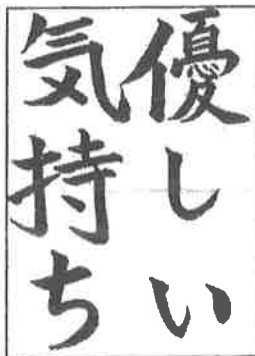 優しい
気持ち